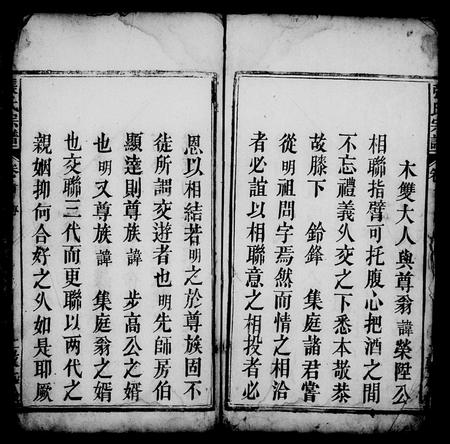 木雙大人與尊翁諱榮陞公
相聯指臂可托腹心把酒之間
不忘禮義久交之下悉本敬恭
故膝下 鈴鋒 集庭諸君嘗
從明祖問字焉然而情之相洽
者必誼以相聯意之相投者必
恩以相結若明之於尊族固不
徒所謂交遊者也明先師房伯
顯達則尊族諱 步高公之婿
也明又尊族諱 集庭翁之婿
也交聯三代而更聯以兩代之
親姻抑何合好之久如是耶厥
張氏宗譜